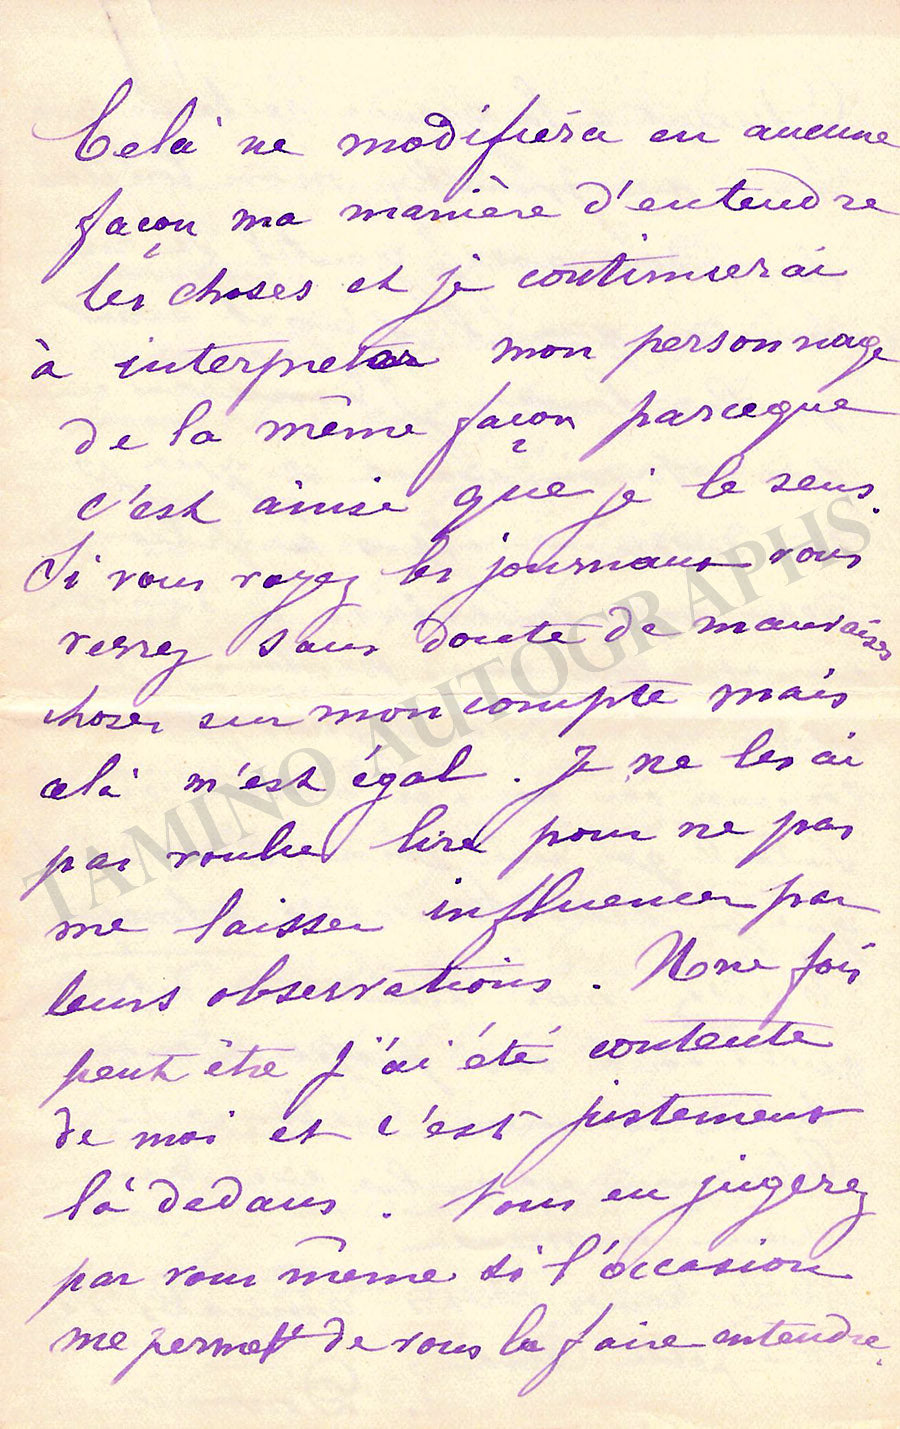 Celà ne modifiera en aucune
façon ma manière d'entendre
les choses et je continuerai
à interpreter mon personnage
de la même façon parceque
c'est ainsi que je le sens.
Si vous voyez les journaux vous
verrez sans doute de mauvaises
choses sur mon compte mais
celà m'est égal. Je ne les ai
pas voulu lire pour ne pas
me laisser influencer par
leurs observations. Une fois
peut être j'ai été contente
de moi et c'est justement
là dedans. Vous en jugerez
par vous même si l'occasion
me permet de vous le faire entendre.
TAMINO AUTOGRAPHS